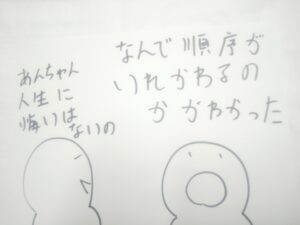 あんちゃん
人生に
悔いはないの
なんで順序が
いれかわるの
かがわかった